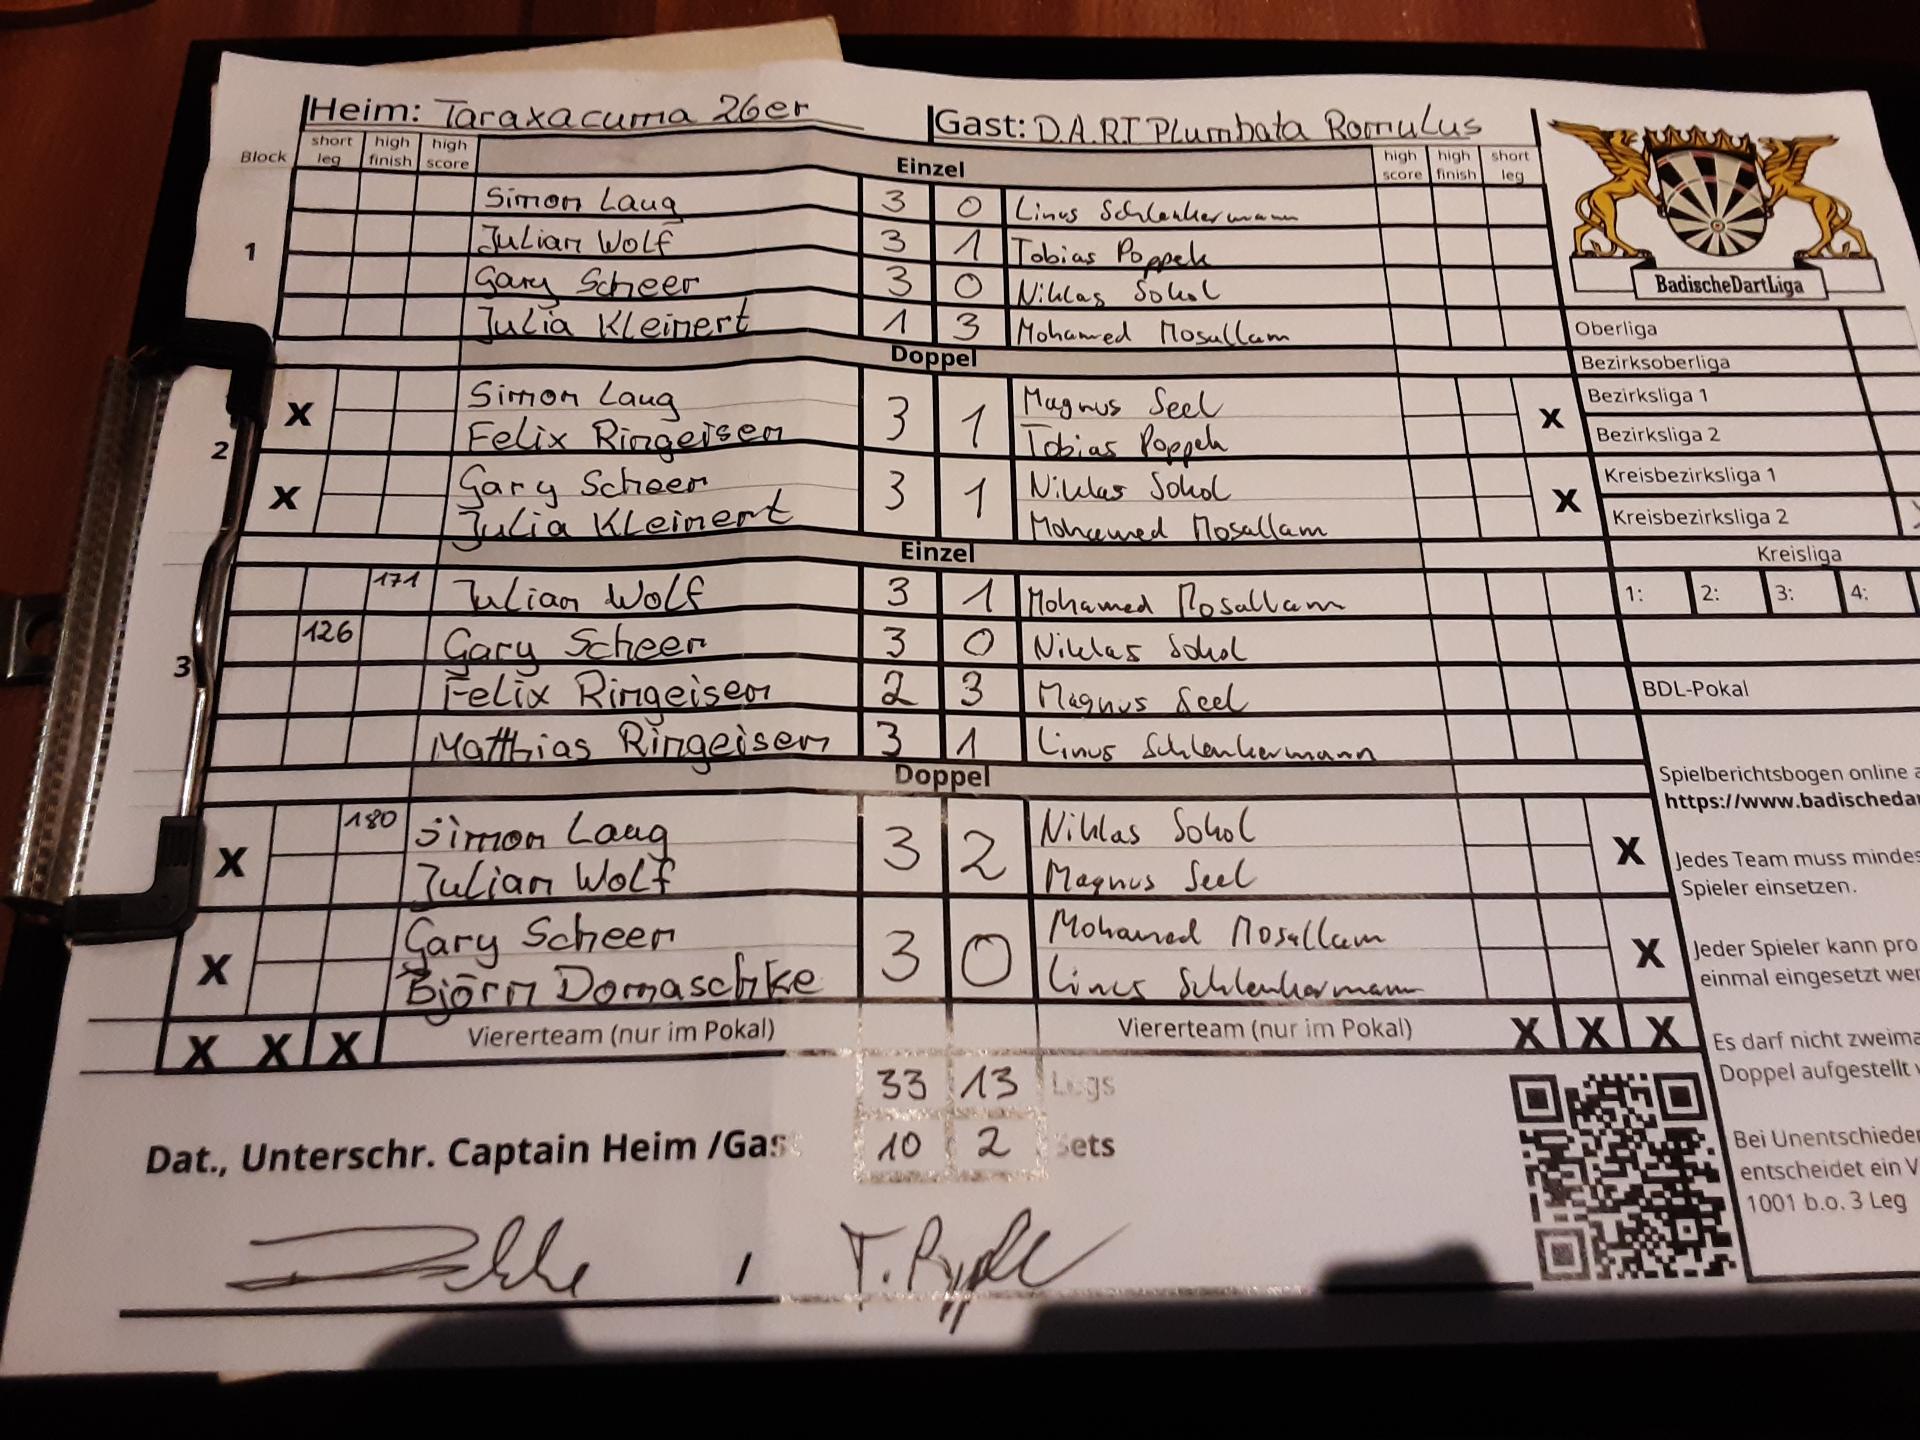 Heim: Taraxacuma 26er Gast: D.A.R.T Plumbata Romulus
Block short leg high finish high score Einzel high score high finish short leg
Simon Laug 3 0 Linus Schlenkermann
1 Julian Wolf 3 1 Tobias Poppek
Gary Scheer 3 0 Niklas Sokol
Julia Kleinert 1 3 Mohamed Mosallam
Doppel
X Simon Laug 3 1 Magnus Seel X
Felix Ringeisen Tobias Poppek
2
X Gary Scheer 3 1 Niklas Sokol X
Julia Kleinert Mohamed Mosallam
Einzel
171 Julian Wolf 3 1 Mohamed Mosallam
126 Gary Scheer 3 0 Niklas Sokol
3 Felix Ringeisen 2 3 Magnus Seel
Matthias Ringeisen 3 1 Linus Schlenkermann
Doppel
X 180 Simon Laug 3 2 Niklas Sokol X
Julian Wolf Magnus Seel
X Gary Scheer 3 0 Mohamed Mosallam X
Björn Domaschke Linus Schlenkermann
X X X Viererteam (nur im Pokal) Viererteam (nur im Pokal) X X X
33 13 Legs
Dat., Unterschr. Captain Heim /Gas 10 2 Sets
/ T. Poppek
BadischeDartLiga
Oberliga
Bezirksoberliga
Bezirksliga 1
Bezirksliga 2
Kreisbezirksliga 1
Kreisbezirksliga 2
Kreisliga
1: 2: 3: 4:
BDL-Pokal
Spielberichtsbogen online a
https://www.badischedar
Jedes Team muss mindes
Spieler einsetzen.
Jeder Spieler kann pro
einmal eingesetzt wer
Es darf nicht zweima
Doppel aufgestellt
Bei Unentschieder
entscheidet ein V
1001 b.o. 3 Leg